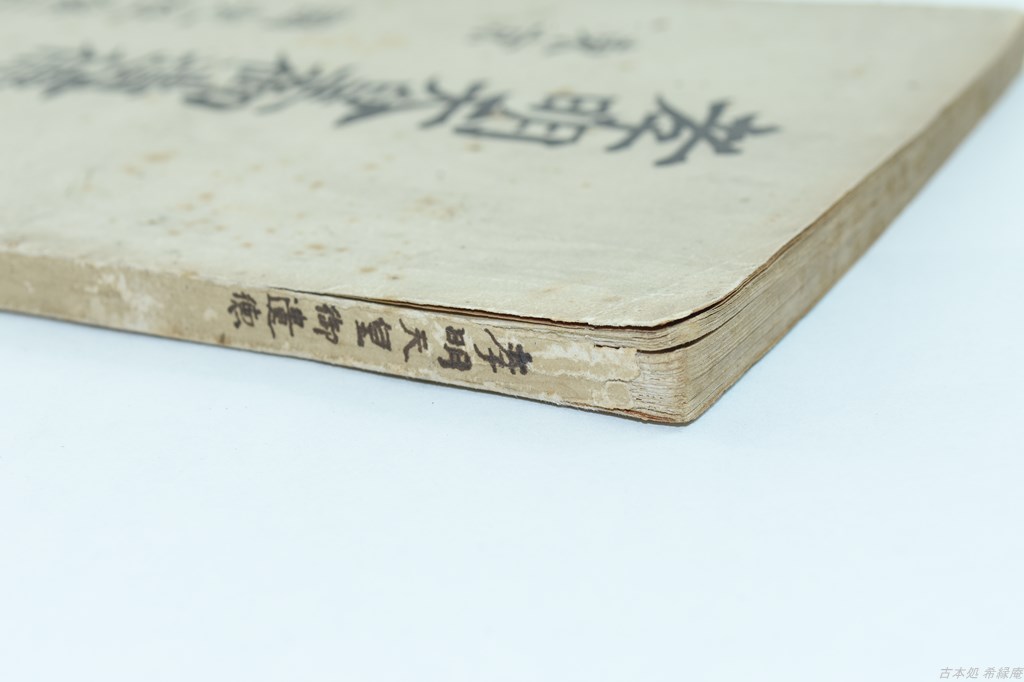 孝明天皇御遺徳
孝明天皇御遺徳
古本処 希縁庵